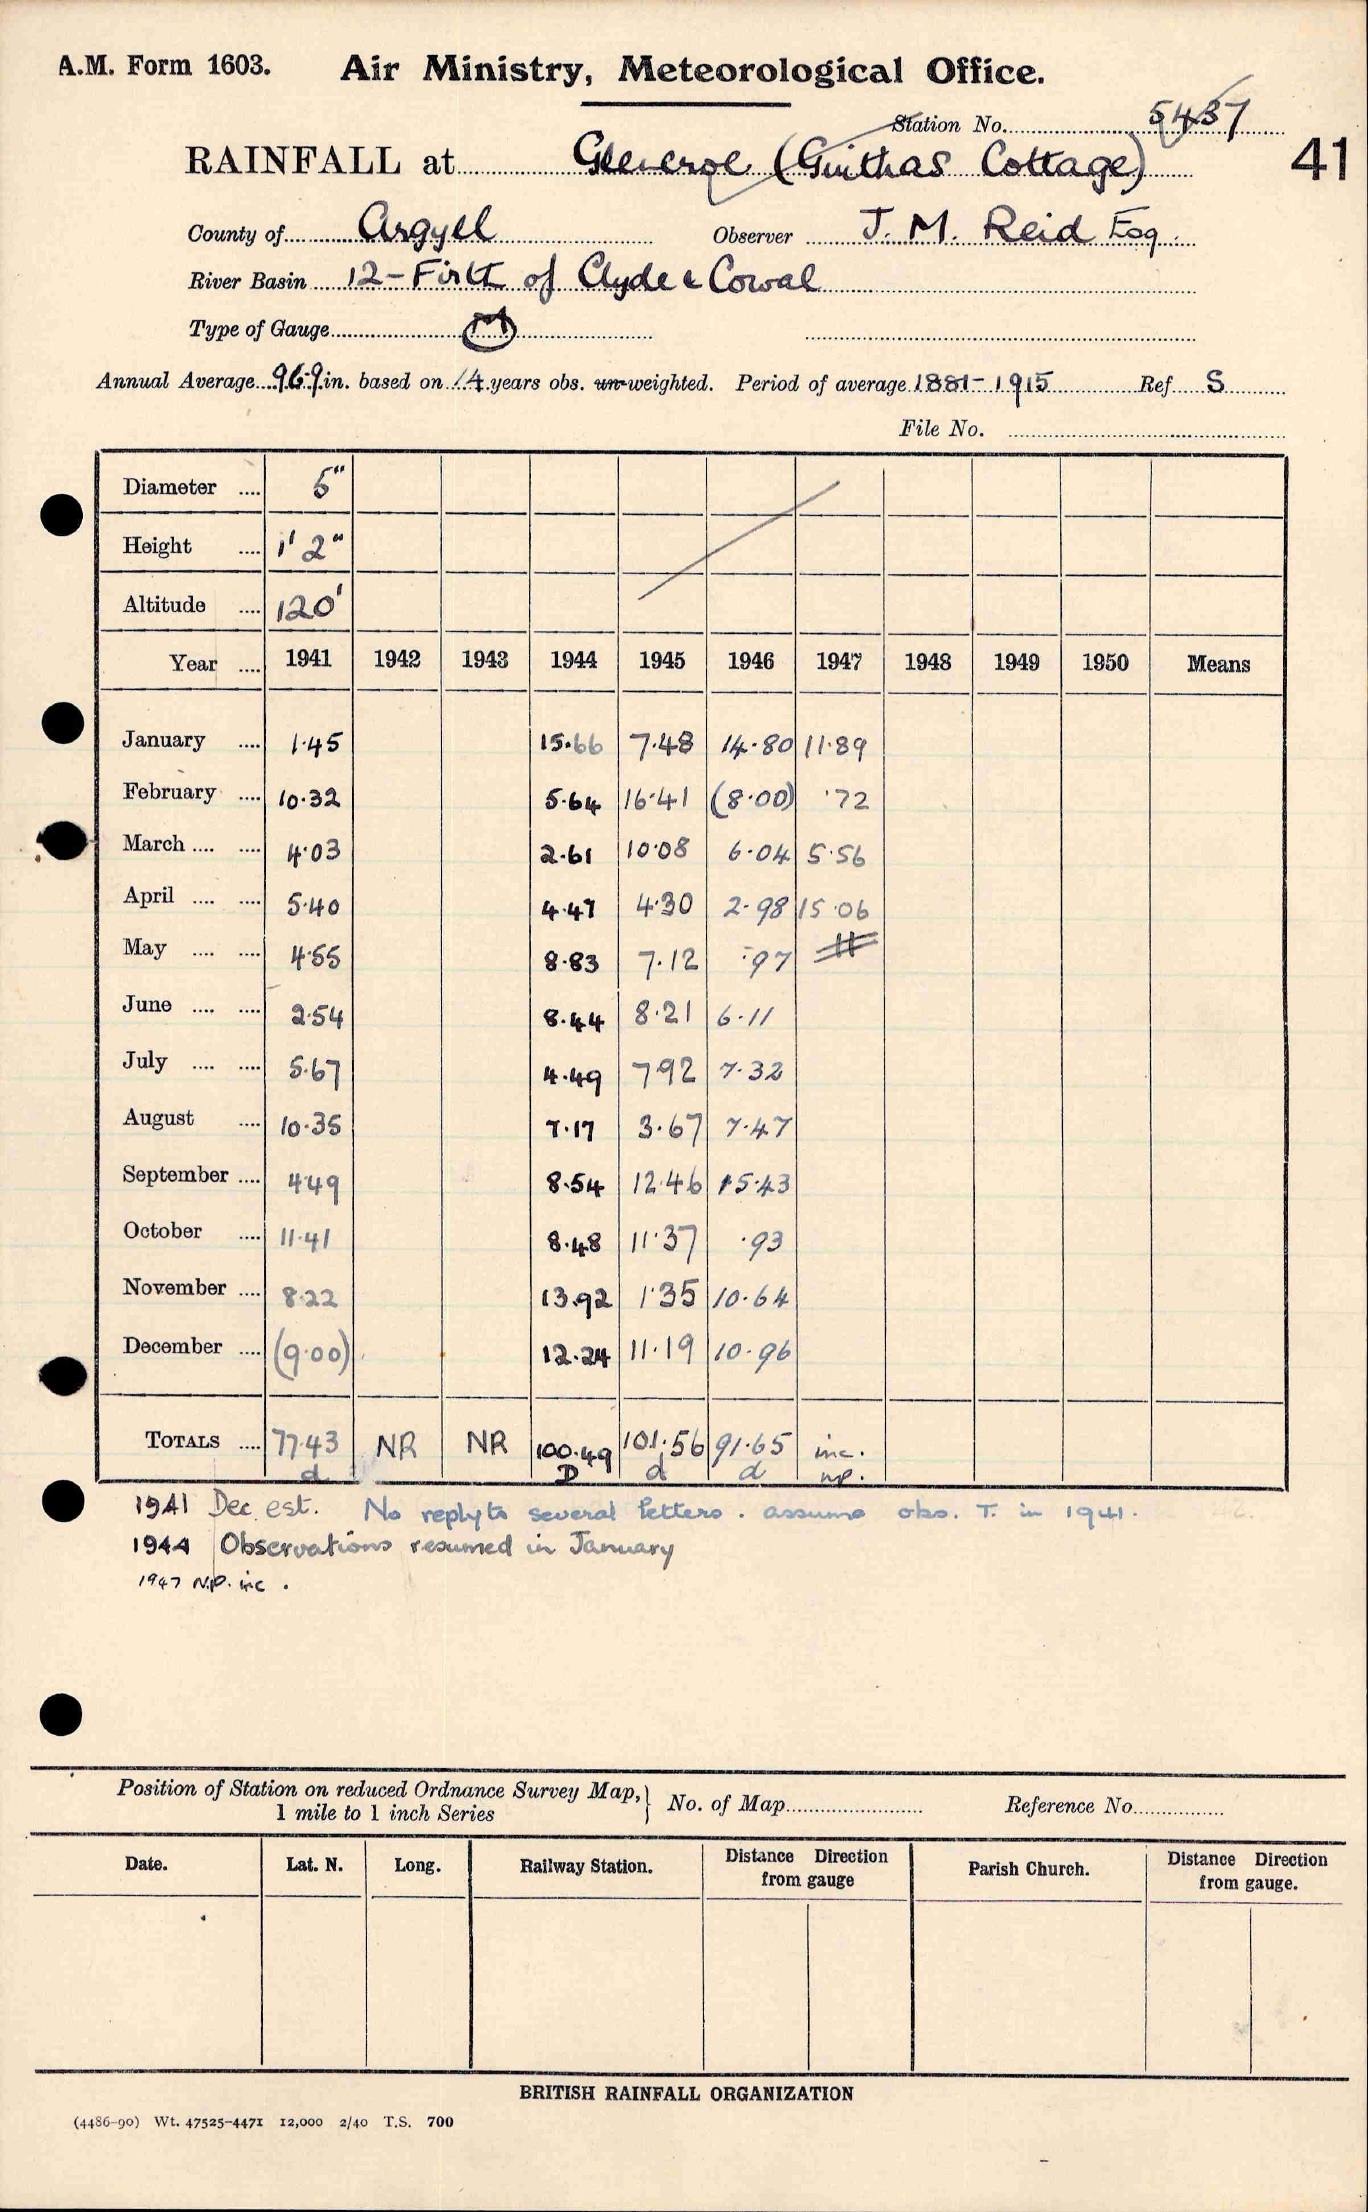 A.M. Form 1603. Air Ministry, Meteorological Office.
Station No. 5437
RAINFALL at Gleneroe (Guithas Cottage) 41
County of Argyll Observer J. M. Reid Esq.
River Basin 12 - Firth of Clyde & Cowal
Type of Gauge M
Annual Average 96.9 in. based on 14 years obs. un-weighted. Period of average 1881-1915 Ref S
File No.
Diameter .... 5"
Height .... 1' 2"
Altitude .... 120'
Year .... 1941 1942 1943 1944 1945 1946 1947 1948 1949 1950 Means
January .... 1.45 15.66 7.48 14.80 11.89
February .... 10.32 5.64 16.41 (8.00) .72
March .... .... 4.03 2.61 10.08 6.04 5.56
April .... .... 5.40 4.47 4.30 2.98 15.06
May .... .... 4.55 8.83 7.12 .97
June .... .... 2.54 8.44 8.21 6.11
July .... .... 5.67 4.49 7.92 7.32
August .... 10.35 7.17 3.67 7.47
September .... 4.49 8.54 12.46 15.43
October .... 11.41 8.48 11.37 .93
November .... 8.22 13.92 1.35 10.64
December .... (9.00) 12.24 11.19 10.96
TOTALS .... 77.43 NR NR 100.49 101.56 91.65 inc.
d D d d np.
1941 Dec est. No reply to several letters. assume obs. T. in 1941.
1944 Observations resumed in January
1947 N.P. inc.
Position of Station on reduced Ordnance Survey Map, 1 mile to 1 inch Series } No. of Map Reference No.
Date. Lat. N. Long. Railway Station. Distance Direction from gauge Parish Church. Distance Direction from gauge.
BRITISH RAINFALL ORGANIZATION
(4486-90) Wt. 47525-4471 12,000 2/40 T.S. 700